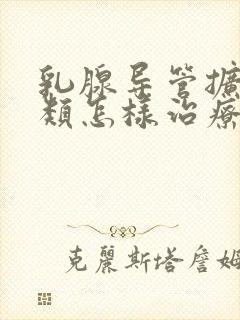 乳腺导管擴
類怎樣治療
克麗斯塔詹姆